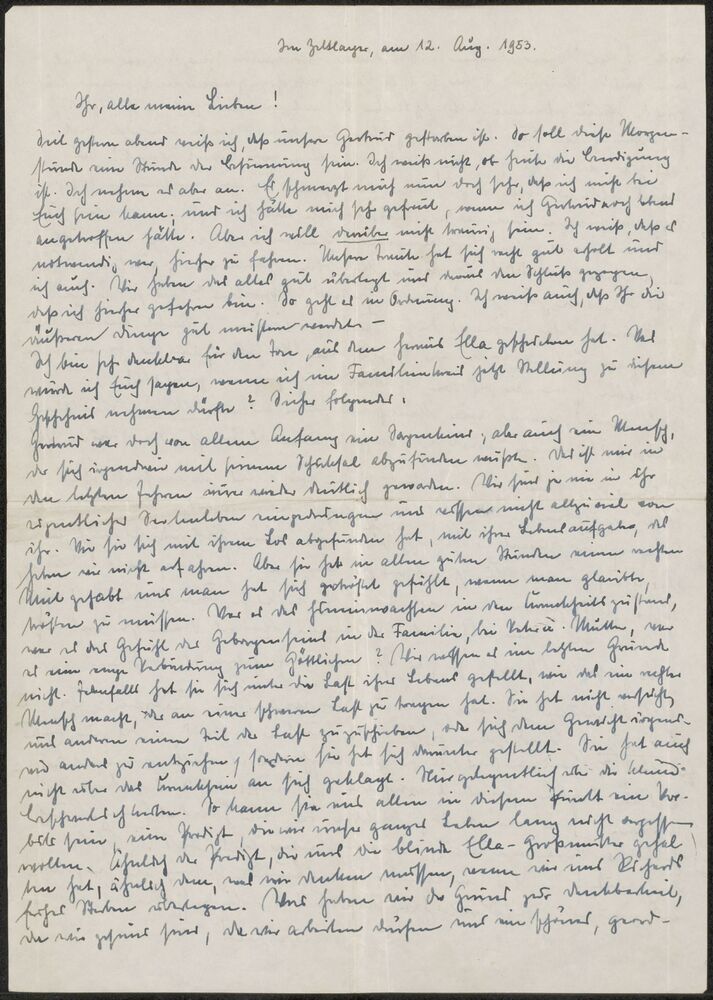 Im Zeltlager, am 12. Aug. 1953.
Ihr, alle meine Lieben!
Seit gestern abend weiß ich, daß unsere Gertrud gestorben ist. So soll diese Morgen-
stunde eine Stunde der Besinnung sein. Ich weiß nicht, ob heute die Beerdigung
ist. Ich nehme es aber an. Es schmerzt mich nun doch sehr, daß ich nicht bei
Euch sein kann, und ich hätte mich sehr gefreut, wenn ich Gertrud noch lebend
angetroffen hätte. Aber ich will darüber nicht traurig sein. Ich weiß, daß es
notwendig war, hierher zu fahren. Unsere hat sich recht gut erholt und
ich auch. Wir haben das alles gut überlegt und daraus den Schluß gezogen,
daß ich hierher gefahren bin. So geht es in Ordnung. Ich weiß auch, daß Ihr die
äußeren Dinge gut meistern werdet. –
Ich bin sehr dankbar für den Ton, aus dem heraus Ella geschrieben hat. Was
würde ich Euch sagen, wenn ich im Familienkreis jetzt Stellung zu diesem
Geschehnis nehmen dürfte? Sicher folgendes:
Gertrud war doch von allem Anfang ein Sorgenkind, aber auch ein Mensch,
der sich irgendwie mit seinem Schicksal abzufinden wußte. Das ist mir in
den letzten Jahren immer wieder deutlich geworden. Wir sind ja nie in ihr
eigentliches Seelenleben eingedrungen und wissen nicht allzuviel von
ihr. Wie sie sich mit ihrem Los abgefunden hat, mit ihrer Lebensaufgabe, das
haben wir nicht erfahren. Aber sie hat in allen guten Stunden einen rechten
Mut gehabt und man hat sich getröstet gefühlt, wenn man glaubte,
trösten zu müssen. War es das Hineinwachsen in den Krankheitszustand,
war es das Gefühl des Geborgenseins in der Familie, bei Vater u. Mutter, war
es eine enge Verbindung zum Göttlichen? Wir wissen es im letzten Grunde
nicht. Jedenfalls hat sie sich unter die Last ihres Lebens gestellt, wie das ein rechter
Mensch macht, der an einer schweren Last zu tragen hat. Sie hat nicht versucht,
uns anderen einen Teil der Last zuzuschieben, oder sich dem Gewicht irgend-
wie anders zu entziehen, sondern sie hat sich darunter gestellt. Sie hat auch
nicht über das Kranksein an sich geklagt. Nur gelegentlich über die
. So kann sie uns allen in diesem Punkt ein Vor-
bild sein, eine Predigt, die wir unser ganzes Leben lang nicht vergessen
wollen. Ähnlich der Predigt, die uns die blinde Ella-Großmutter gehal-
ten hat, ähnlich dem, was wir denken müssen, wenn wir uns Richards
frühes Sterben überlegen. Was haben wir da Grund zur Dankbarkeit,
da wir gesund sind, da wir arbeiten dürfen und ein schönes, geord-